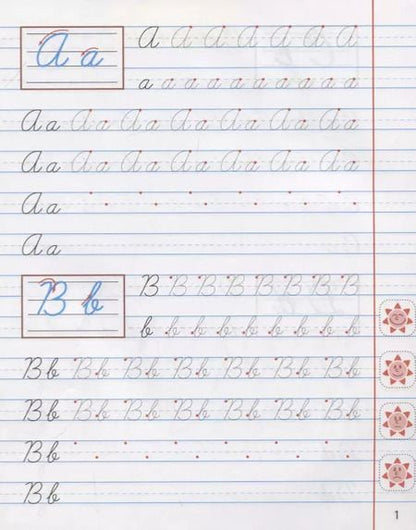 A a
A A A A A A A
a a a a a a a a a a a
A a A a A a A a A a A a A a
A a A a A a A a A a A a A a
A a
A a
B b
B B B B B B B B
b b b b b b b b b
B b B b B b B b B b B b B b
B b B b B b B b B b B b B b
B b
B b
1